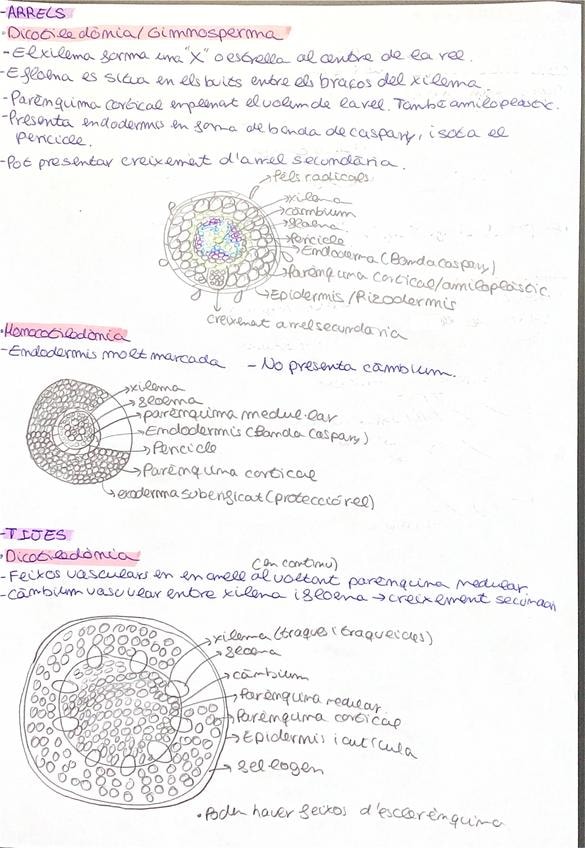 -ARRELS
·Dicotiledònia/Gimnosperma
-El xilema forma una "X" o estrella al centre de la rel.
-El floema es situa en els buits entre els braços del xilema.
-Parènquima cortical enplenat el volum de la rel. També amiloplastic.
-Presenta endodermis en forma de banda de caspary, i sota el
pericicle.
-Pot presentar creixement d'arrel secundària.
Pèls radicals
xilema
càmbium
floema
Pericicle
Endoderma (Banda caspary)
Parènquima cortical/amiloplàstic.
Epidermis/Rizodermis
creixement arrel secundària
·Monocotiledònia
-Endodermis molt marcada - No presenta càmbium.
xilema
floema
parènquima medul·lar
Endodermis (Banda Caspary)
Pericicle
Parènquima cortical
exoderma suberificat (protecció rel)
-TIJES
·Dicotiledònia
(an continu)
-Feixos vasculars en en anell al voltant parènquima medular.
-càmbium vascular entre xilema i floema → creixement secundari
xilema (traques i traqueides)
floema
càmbium
Parènquima medular.
Parènquima cortical
Epidermis i cutícula
fel·logen
·Poden haver feixos d'esclerènquima